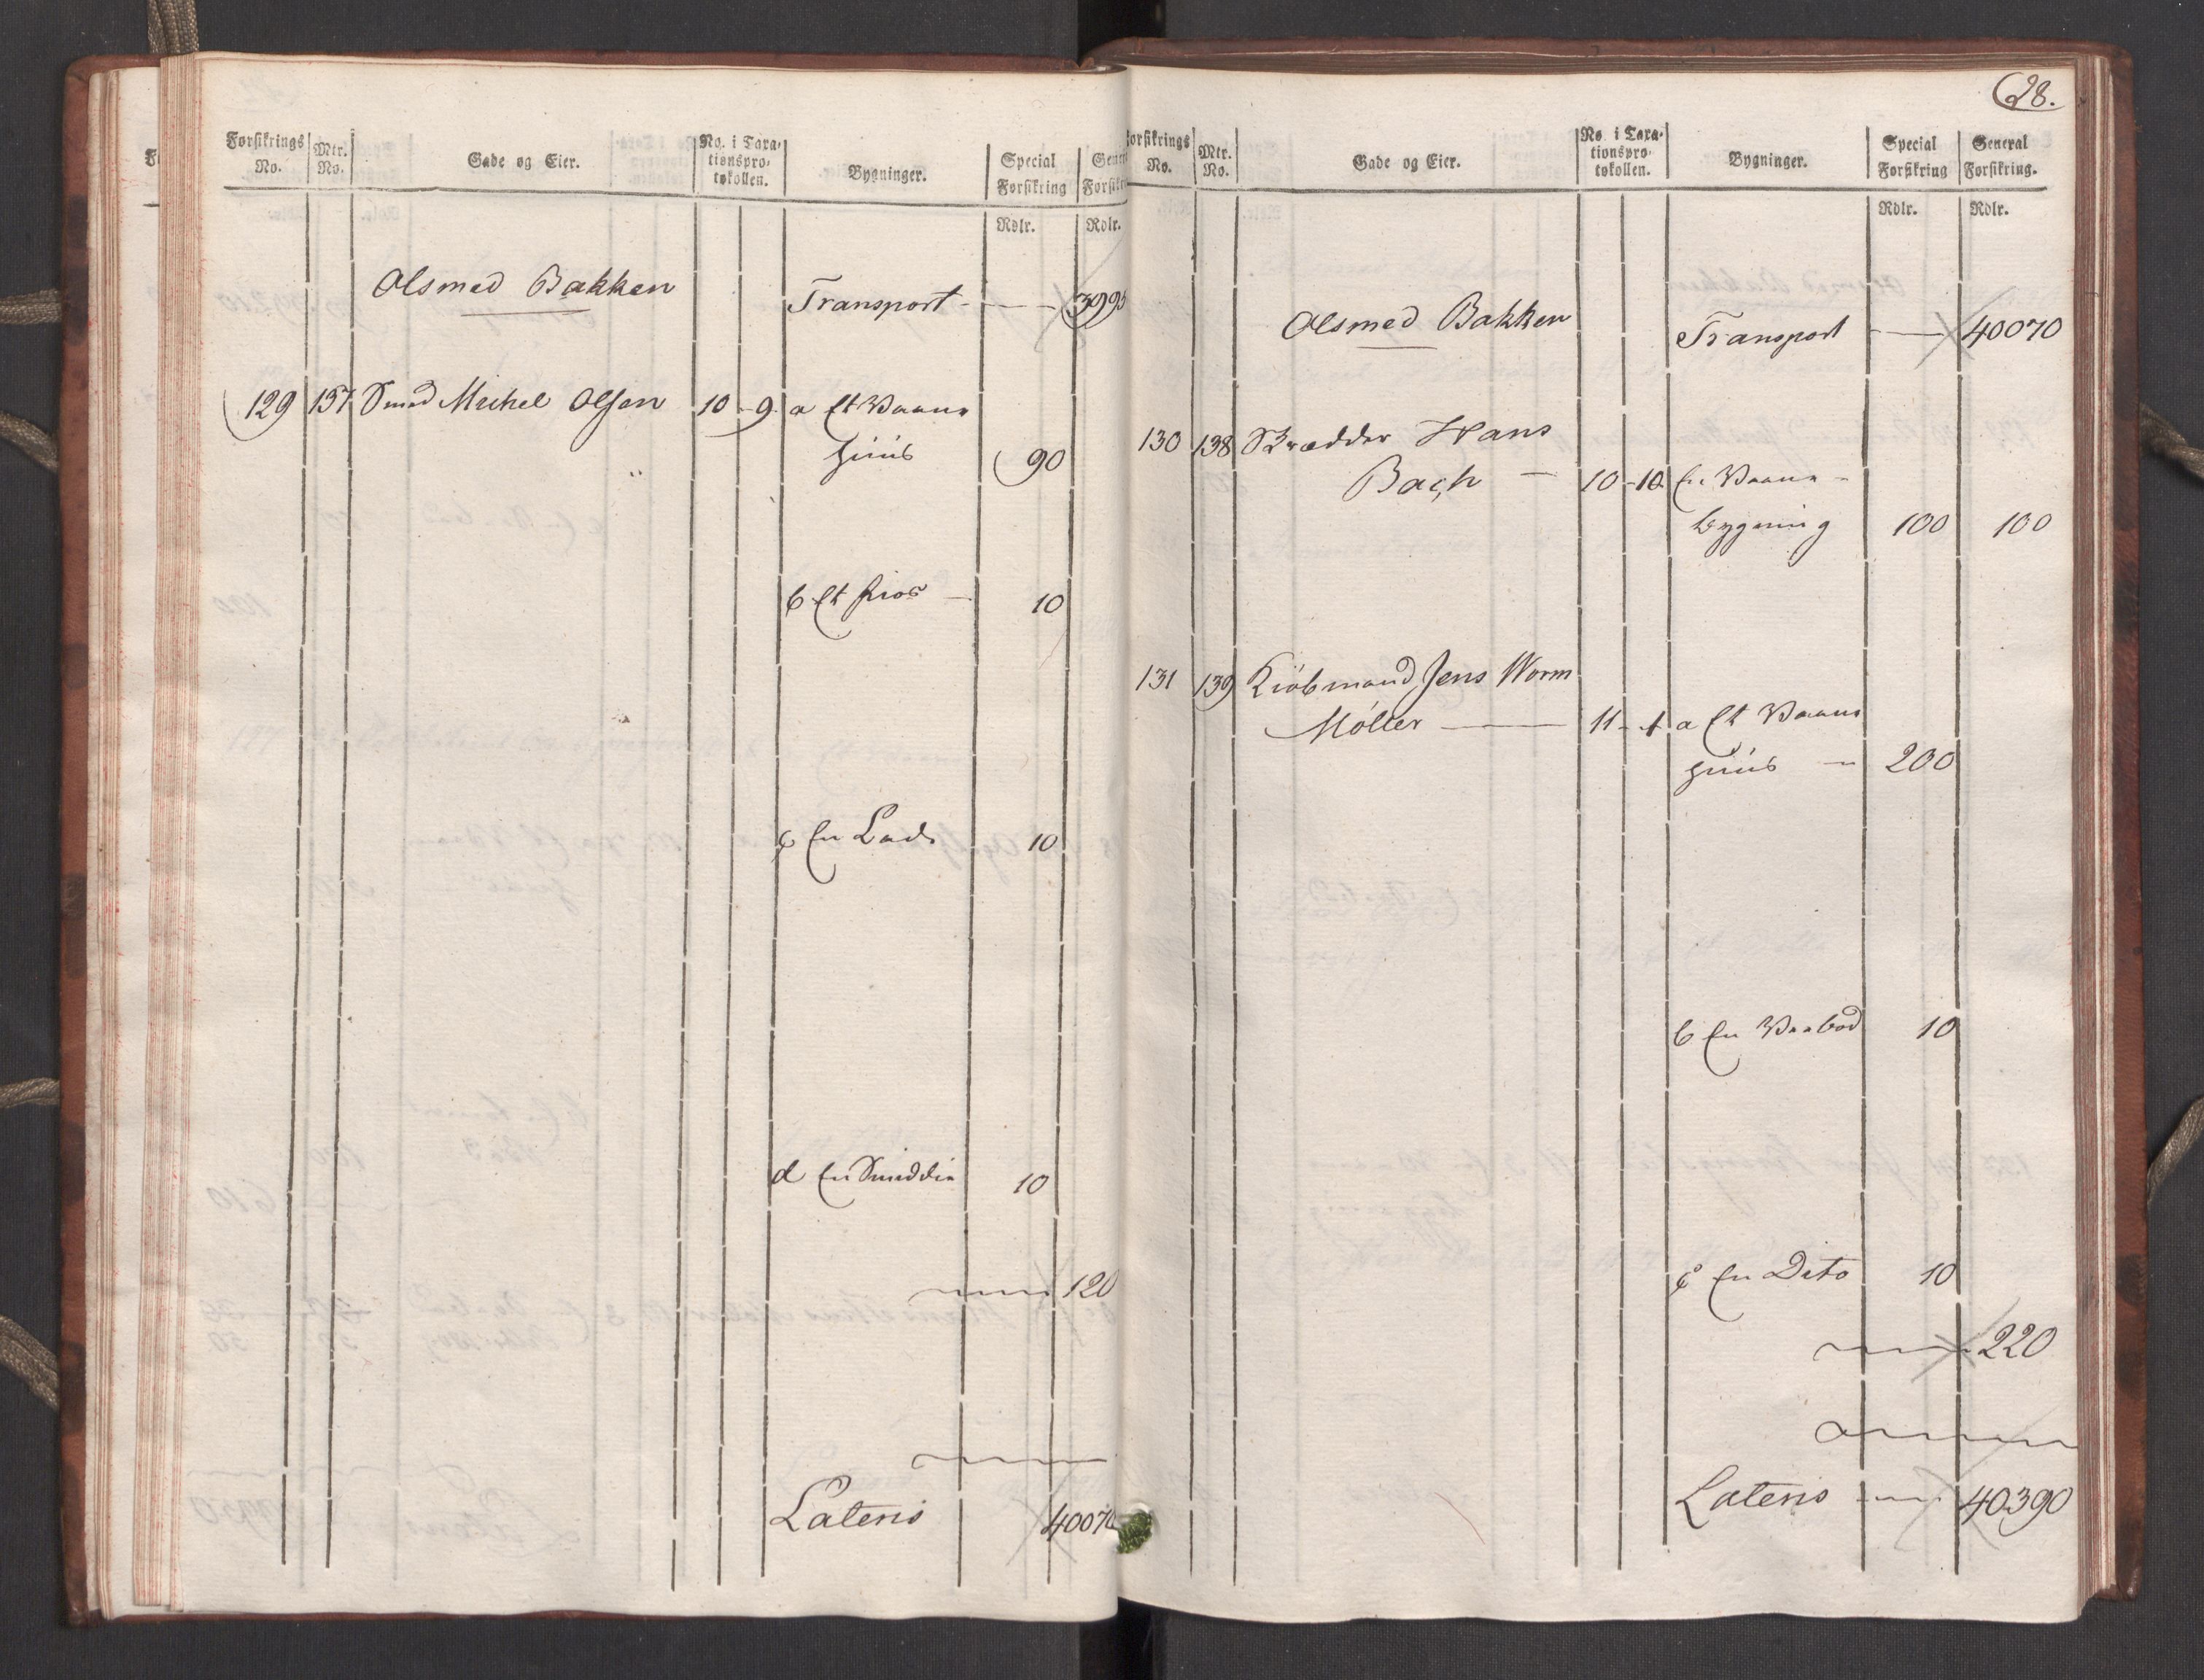 Forsikrings No. | Mtr. No. | Gade og Eier. | No. i Taxationsprotokollen. | Bygninger. | Special Forsikring | Gene Forsik
Rdlr. | Rdlr.
Olsmed Bakken | Transport - | 3995
129 | 137 | Smed Michel Olsen | 10 - 9 | a Et Vaane
Huus | 90
b Et Fios - | 10
c En Lade | 10
d En Smiddie | 10
120
Lateris | 40070
28.
Forsikrings No. | Mtr. No. | Gade og Eier. | No. i Taxationsprotokollen. | Bygninger. | Special Forsikring | General Forsikring.
Rdlr. | Rdlr.
Olsmed Bakken | Transport - | 40070
130 | 138 | Skrædder Hans
Bach - | 10 - 10 | En Vaane -
bygning | 100 | 100
131 | 139 | Kiøbmand Jens Worm
Møller - | 11 - 1 | a Et Vaane
Huus - | 200
b En Vaabod | 10
c En Dito | 10
220
Lateris - | 40390